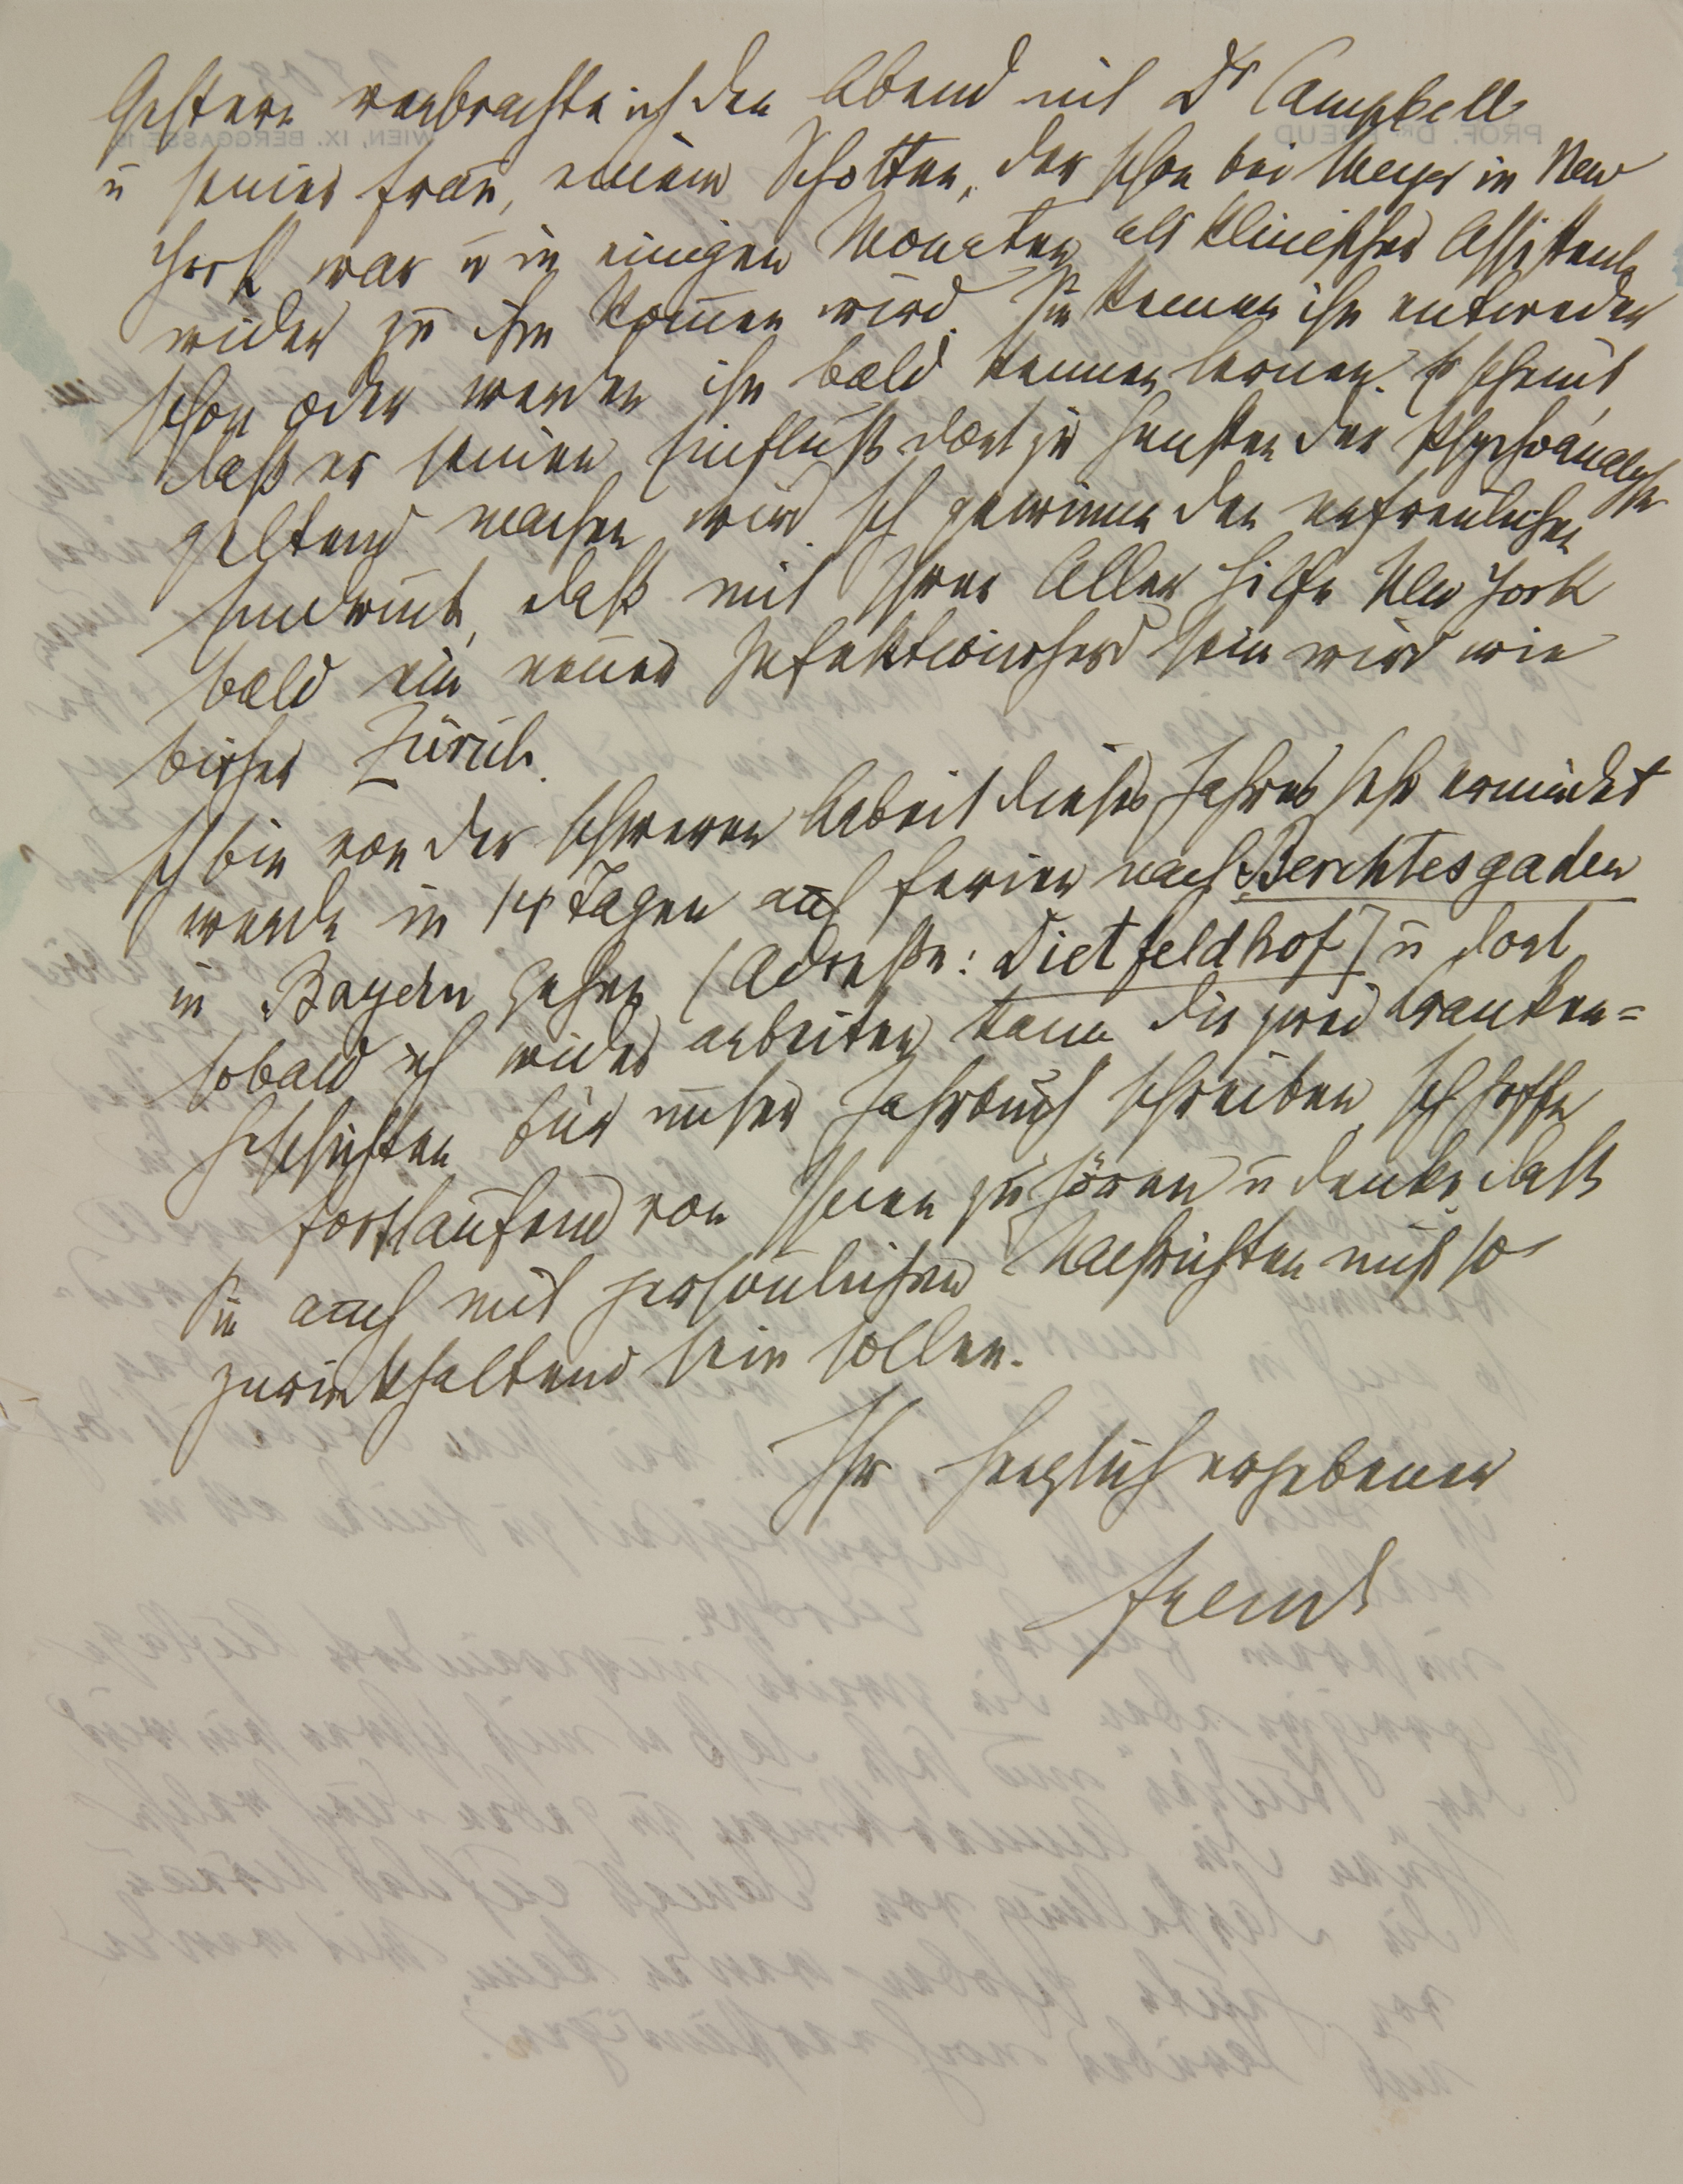 Gestern verbrachte ich den Abend mit Dr Campbell
u seiner Frau, einem Schotten, der schon bei Meyer in New
York war u in einigen Monaten als klinischer Assistent
wieder zu ihm kom̄en wird. Sie kennen ihn entweder
schon oder werden ihn bald kennen lernen. Es scheint,
daß er seinen Einfluß dort zu Gunsten der Psychoanalyse
geltend machen wird. Ich gewinne den erfreulichen
Eindruck, daß mit Ihrer Aller Hilfe New York
bald ein neuer Infektionsherd sein wird wie
bisher Zürich.
Ich bin von der schweren Arbeit dieses Jahres sehr ermüdet
werde in 14 Tagen auf Ferien nach Berchtesgaden
in Bayern gehen (Adresse: Dietfeldhof) u dort
sobald ich wieder arbeiten kann die zwei Kranken=
geschichten für unser Jahrbuch schreiben. Ich hoffe
fortlaufend von Ihnen zu hören u denke, daß
Sie auch mit persönlichen Nachrichten nicht so
zurückhaltend sein sollen.
Ihr herzlich ergebener
Freud